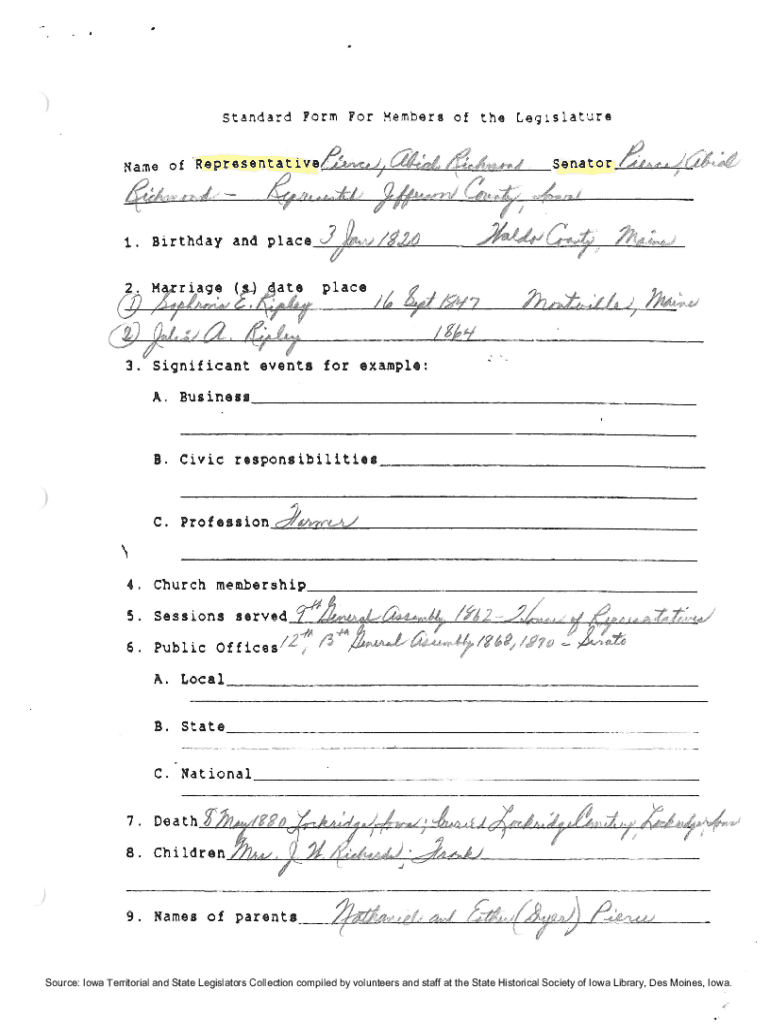 Standard Form For Members of the Legislature
Name of Representative Pierce, Abial Richmond Senator Pierce, Abial
Richmond - Represented Jefferson County, Iowa
1. Birthday and place 3 Jan 1820 Waldo County, Maine
2. Marriage (s) date place
(1) Sophronia E. Ripley 16 Sept 1847 Montville, Maine
(2) Julia A. Ripley 1864
3. Significant events for example:
A. Business
B. Civic responsibilities
C. Profession Farmer
4. Church membership
5. Sessions served 9th General Assembly 1862 - House of Representatives
6. Public Offices 12th, 13th General Assembly 1868, 1870 - Senate
A. Local
B. State
C. National
7. Death 8 May 1880 Lockridge, Iowa; buried Lockridge Cemetery, Lockridge, Iowa
8. Children Mrs. J. W. Richards; Frank
9. Names of parents Nathaniel and Esther (Dyer) Pierce
Source: Iowa Territorial and State Legislators Collection compiled by volunteers and staff at the State Historical Society of Iowa Library, Des Moines, Iowa.